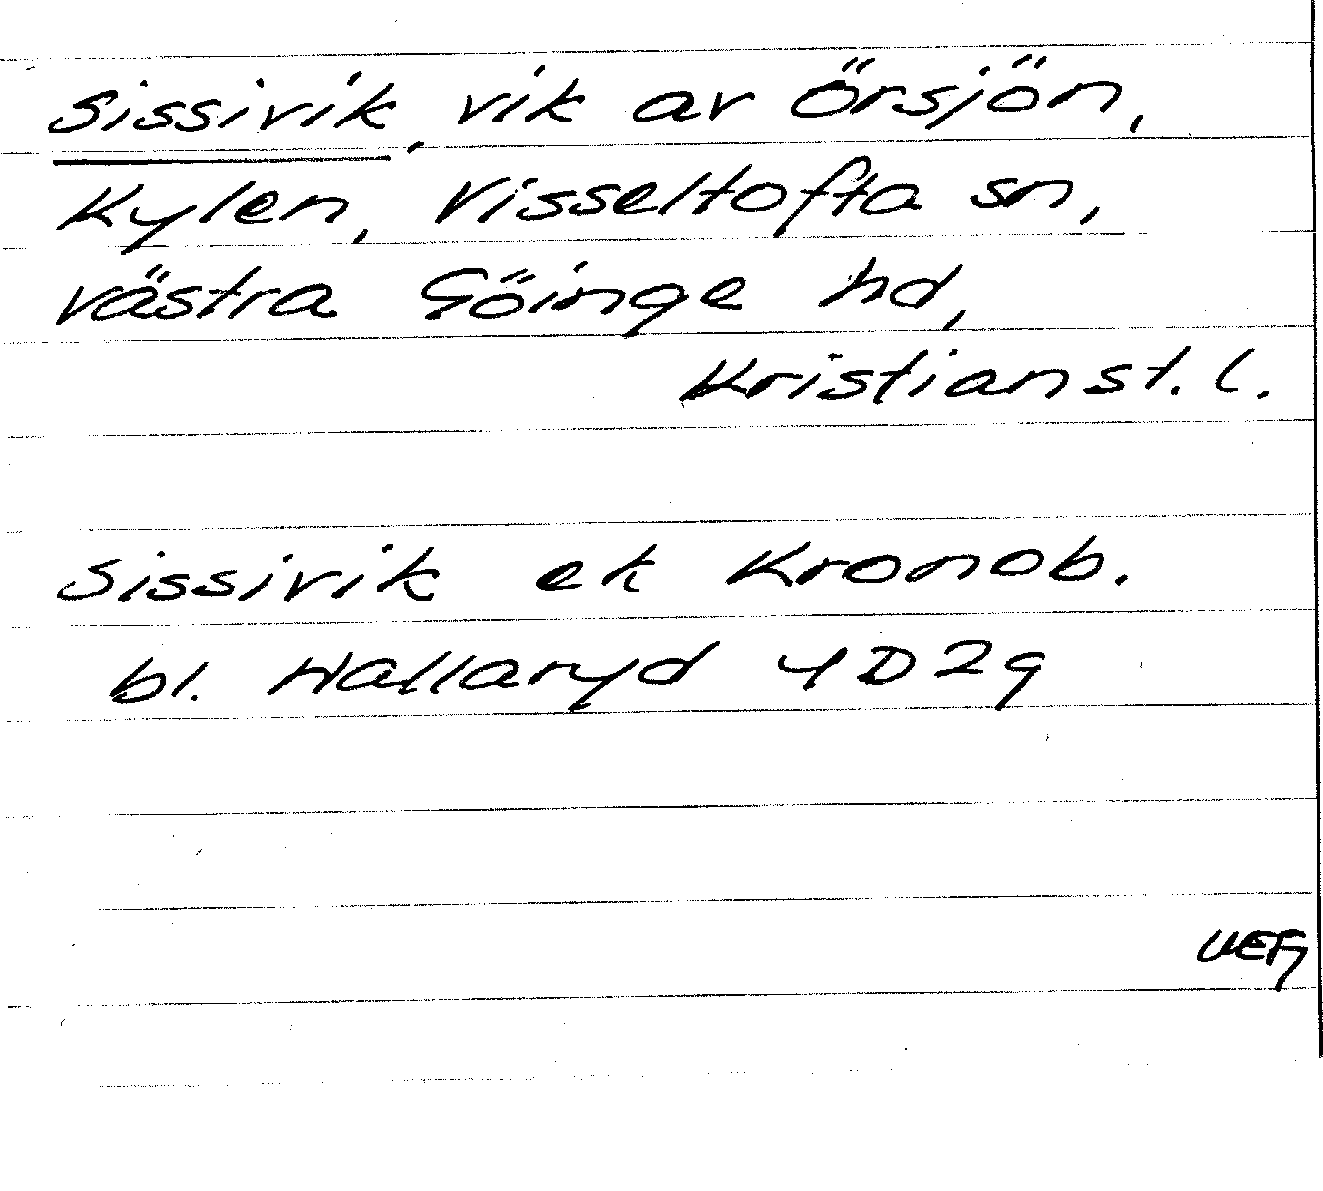 Sissivik, vik av Örsjön,
Kylen, Visseltofta sn,
västra Göinge hd,
Kristianst. l.
Sissivik ek Kronob.
bl. Hallaryd 4D2g